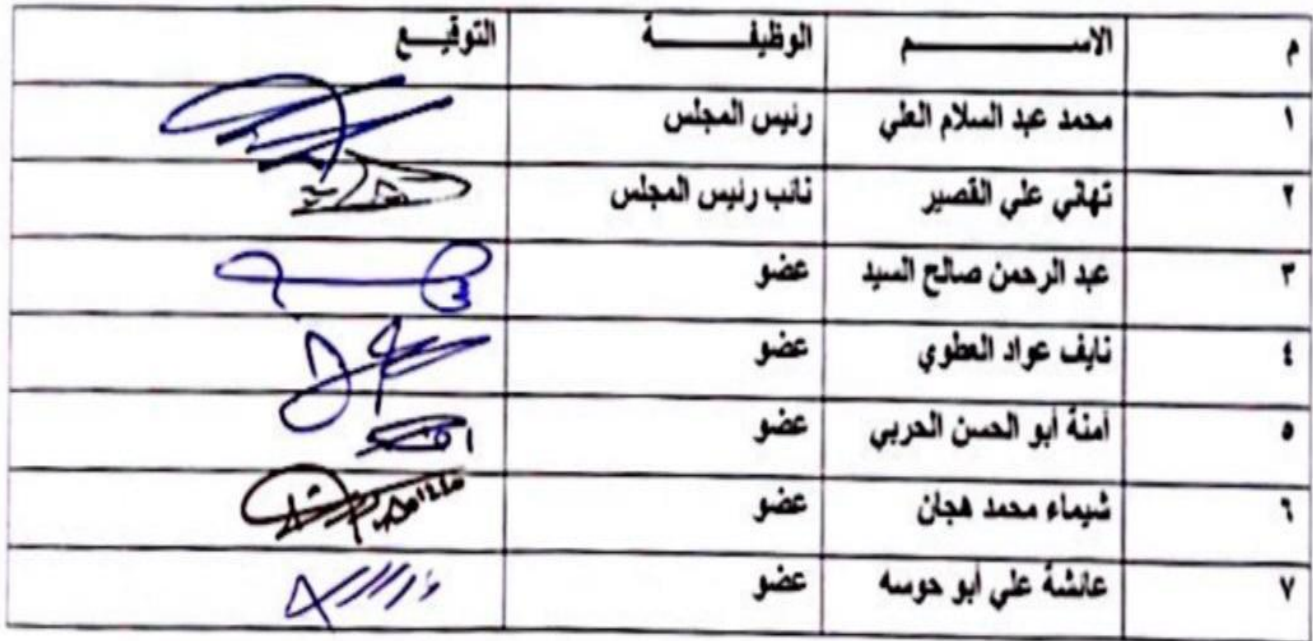 م الاســــــــــــم الوظيفــــــــــة التوقيــــع
١ محمد عبد السلام العلي رئيس المجلس
٢ تهاني علي القصير نائب رئيس المجلس
٣ عبد الرحمن صالح السيد عضو
٤ نايف عواد العطوي عضو
٥ آمنة أبو الحسن الحربي عضو
٦ شيماء محمد هجان عضو
٧ عائشة علي أبو حوسه عضو